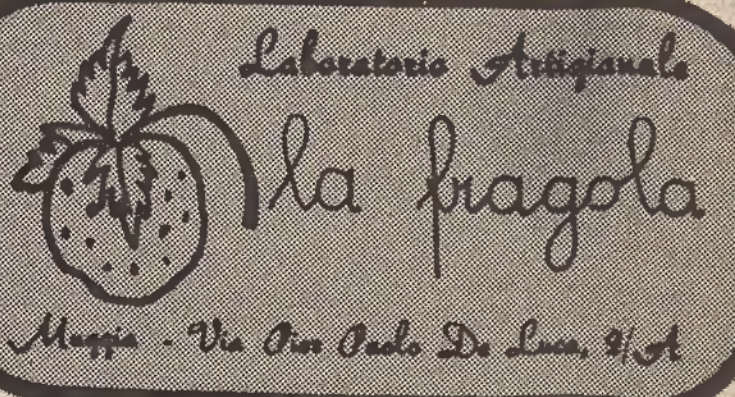 Laboratorio Artigianale
la fragola
Muggia - Via Pier Paolo De Luca, /A